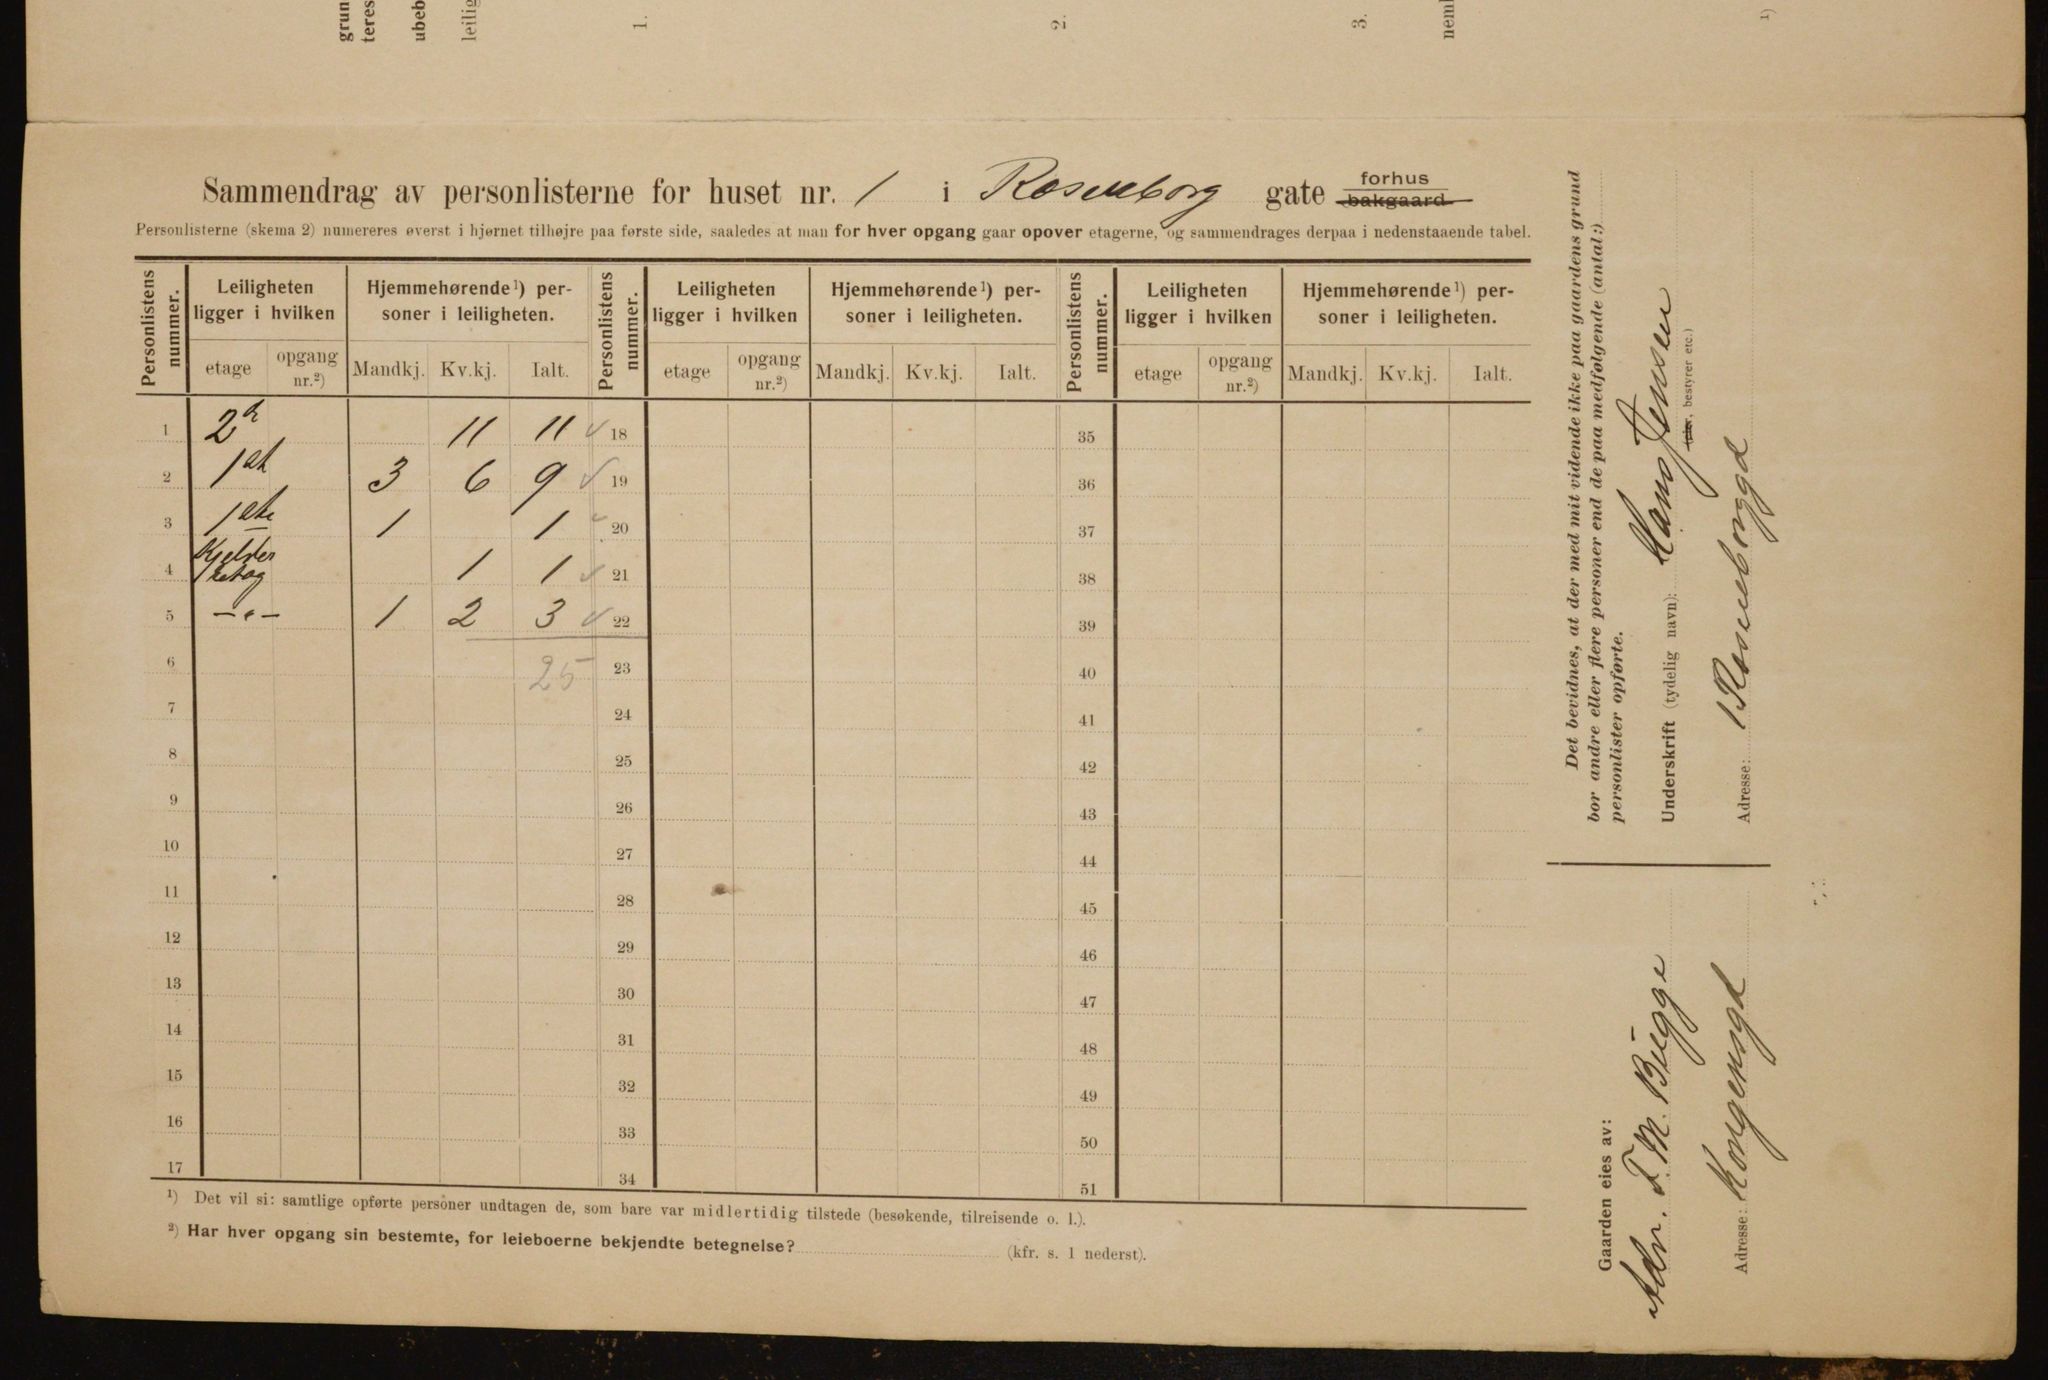 grun
teres
ubeb
leilig
1.
2.
3.
neml
1)
Sammendrag av personlisterne for huset nr. 1 i Rosenborg gate forhus bakgaard
Personlisterne (skema 2) numereres øverst i hjørnet tilhøjre paa første side, saaledes at man for hver opgang gaar opover etagerne, og sammendrages derpaa i nedenstaaende tabel.
Personlistens nummer. Leiligheten ligger i hvilken Hjemmehørende 1) personer i leiligheten. Personlistens nummer. Leiligheten ligger i hvilken Hjemmehørende 1) personer i leiligheten. Personlistens nummer. Leiligheten ligger i hvilken Hjemmehørende 1) personer i leiligheten.
etage opgang nr.2) Mandkj. Kv.kj. Ialt. etage opgang nr.2) Mandkj. Kv.kj. Ialt. etage opgang nr.2) Mandkj. Kv.kj. Ialt.
1 11 11 18 35
2 3 6 9 19 36
3 1 1 20 37
4 Kjelder 1 1 21 38
5 —"— 1 2 3 22 39
6 25 23 40
7 24 41
8 25 42
9 26 43
10 27 44
11 28 45
12 29 46
13 30 47
14 31 48
15 32 49
16 33 50
17 34 51
1) Det vil si: samtlige opførte personer undtagen de, som bare var midlertidig tilstede (besøkende, tilreisende o. l.).
2) Har hver opgang sin bestemte, for leieboerne bekjendte betegnelse? (kfr. s. 1 nederst).
Det bevidnes, at der med mit vidende ikke paa gaardens grund
bor andre eller flere personer end de paa medfølgende (antal:)
personlister opførte.
Underskrift (tydelig navn): Hans Jensen
(eier, bestyrer etc.)
Adresse: 1 Rosenborggd
Gaarden eies av:
Adv. F. M. Bugge
Adresse: Kongensgd